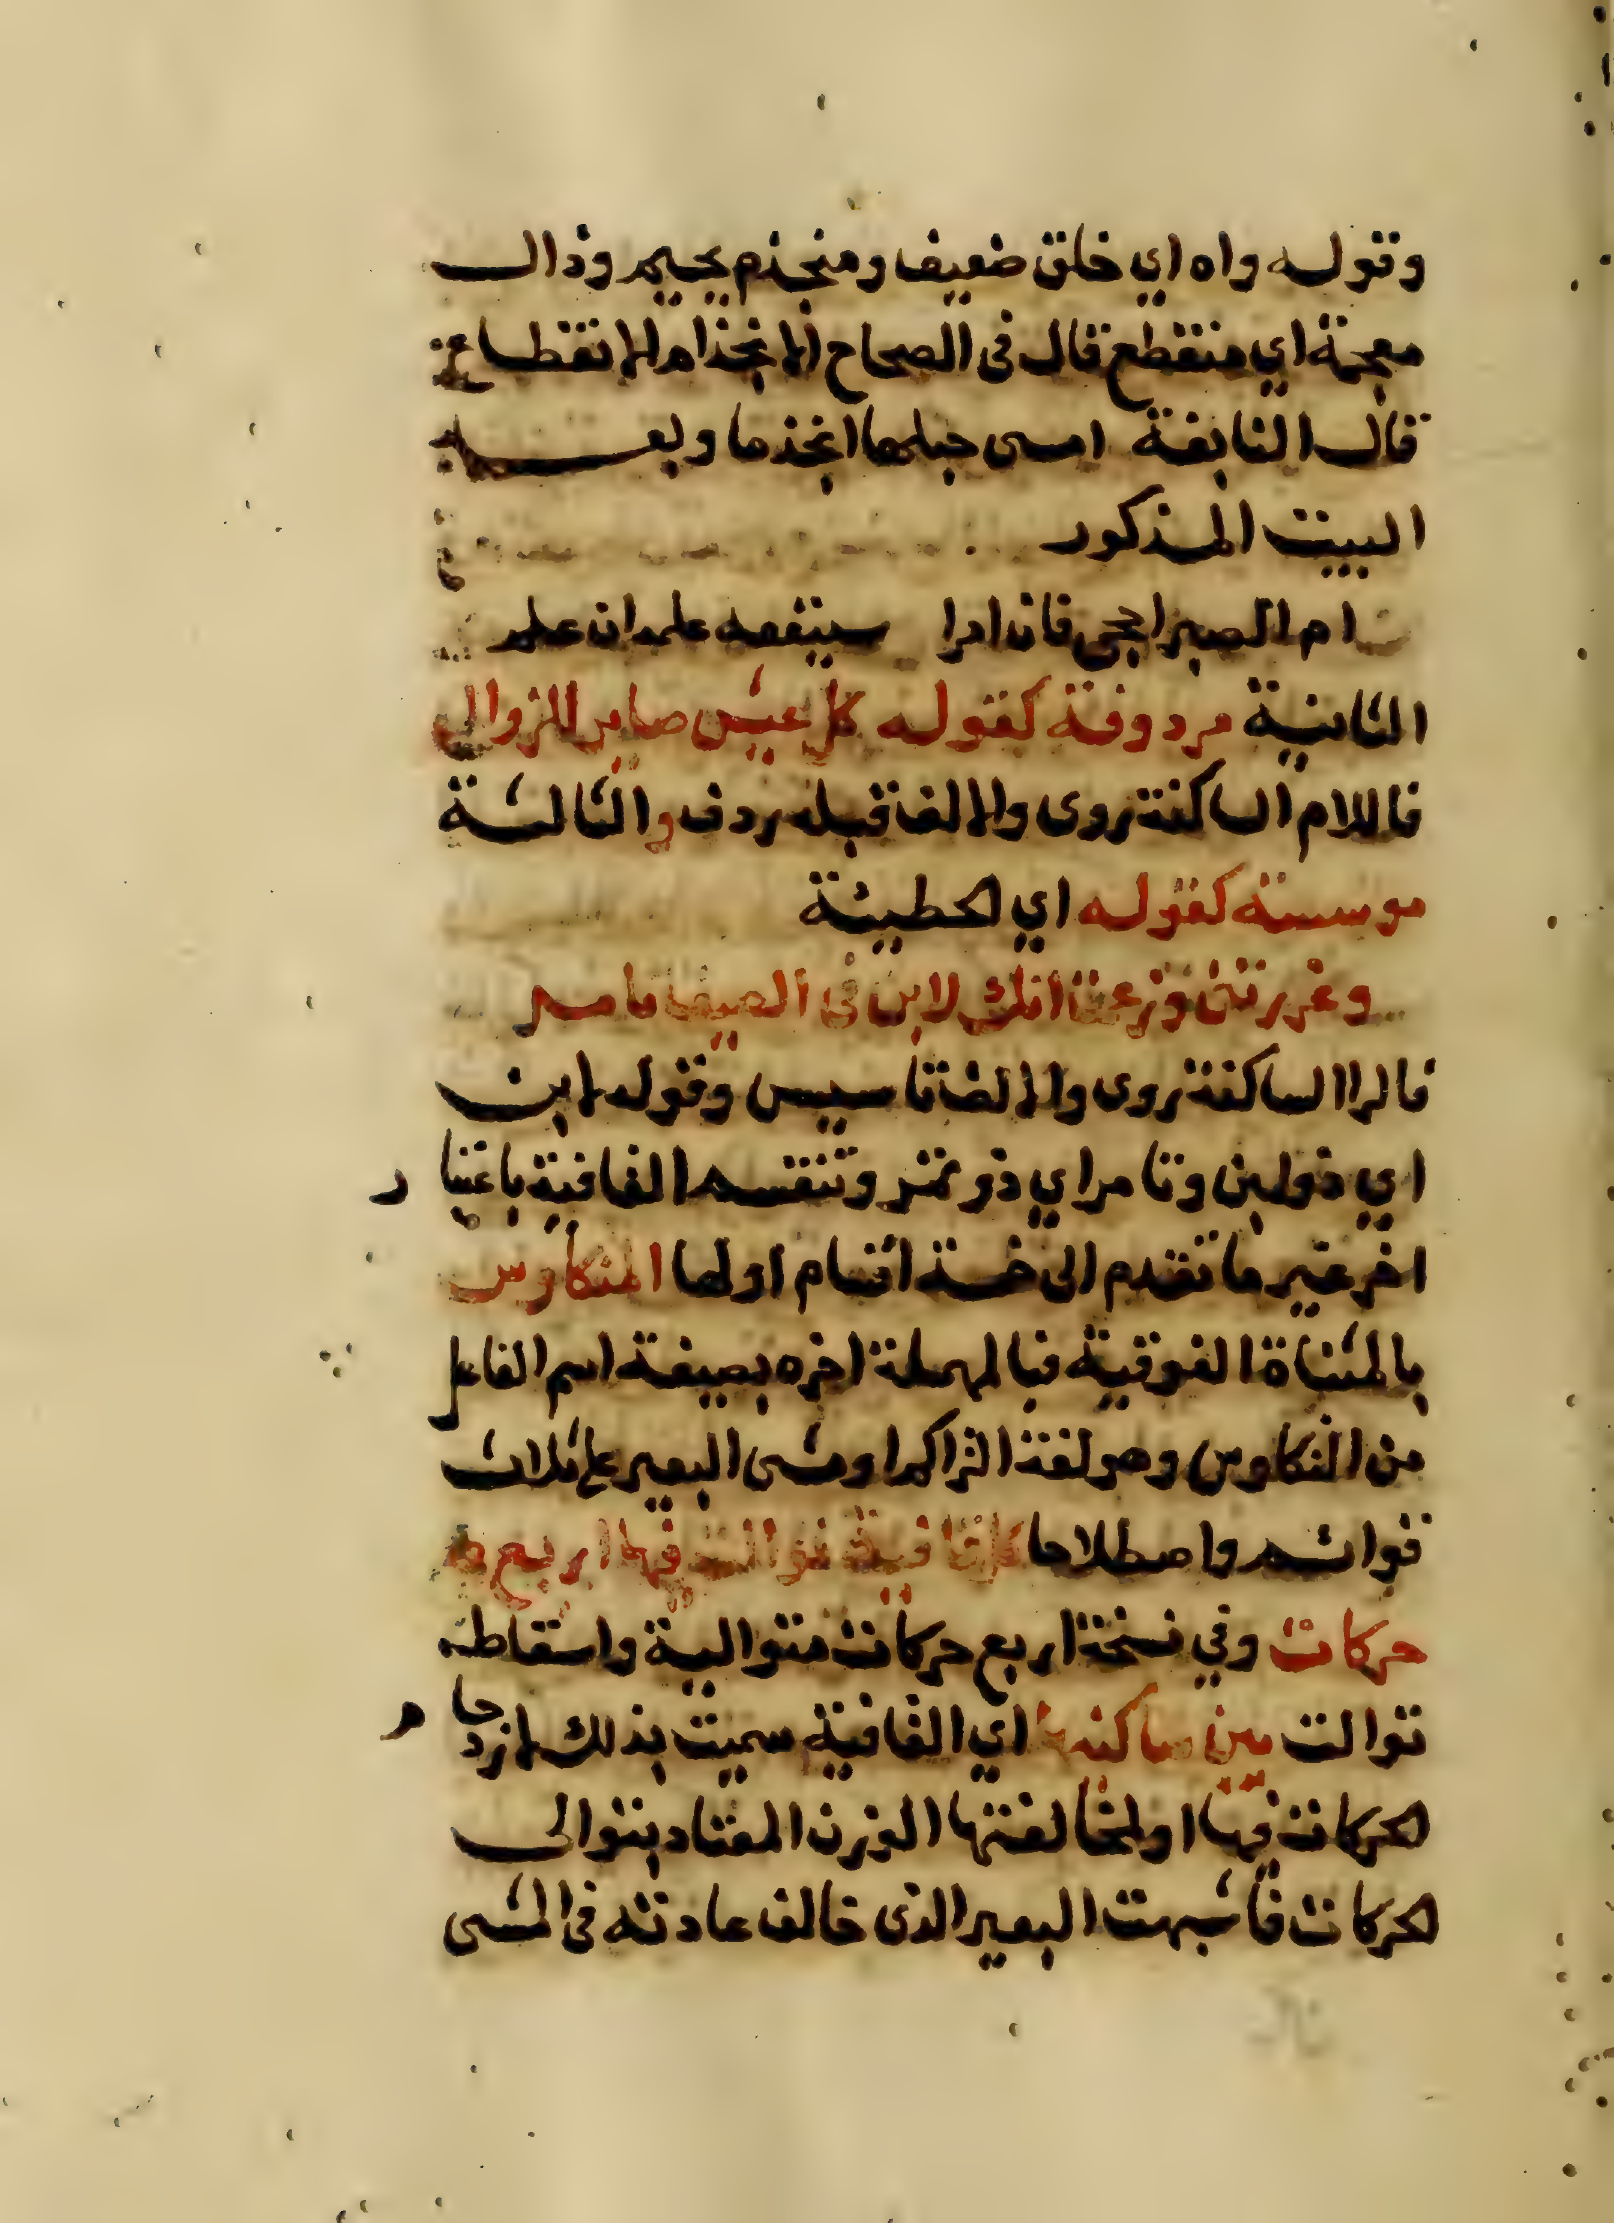 وقوله واه اي خلق ضعيف ومنجذم بجيم وذال
معجمة اي منقطع قال في الصحاح الانجذام الانقطاع
قال النابغة امسى حبلها انجذما وبعـ
البيت المذكور
ام الصبر احجى فان امرا سينفعه علمه ان علم
الثانية مردوفة كقوله كل عيش صاير للزوال
فاللام الساكنة روى والالف قبله ردف والثالثة
موسسة كقوله اي الحطيئة
وغررتنى وزعمت انك لابن في الصيف تامر
فالرا الساكنة روى والالف تاسيس وقوله لابن
اي ذو لبن وتامر اي ذو تمر وتنقسم القافية باعتبار
اخر غير ما تقدم الى خمسة اقسام اولها المتكاوس
بالمثناة الفوقية فبالمهملة اخره بصيغة اسم الفاعل
من التكاوس وهو لغة التراكم او مشى البعير على ثلاث
قوائم واصطلاحا كل قافية توالت فيها اربع
حركات وفي نسخة اربع حركات متوالية واسقاط
توالت بين ساكنيها اي القافية سميت بذلك لازدحام
الحركات فيها او لمخالفتها الوزن المعتاد بتوالى
الحركات فأشبهت البعير الذى خالف عادته في المشى